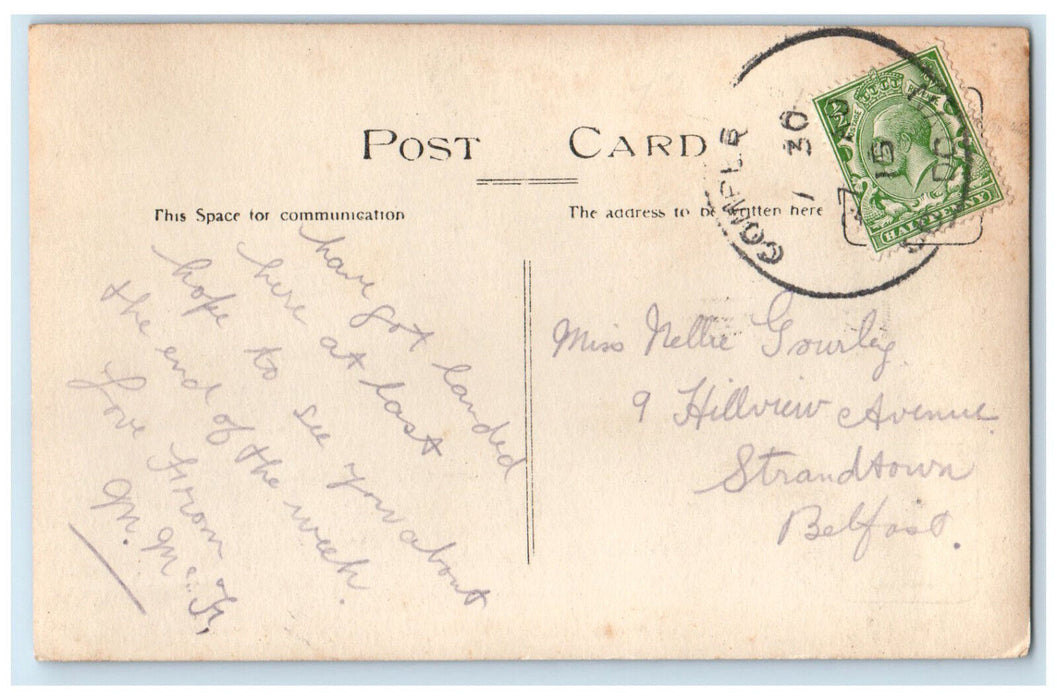 POST CARD
This Space for communication
The address to be written here
COMBER
7 30 P
JY 15
CO DOWN
HALFPENNY
have got landed
here at last
hope to see you about
the end of the week.
Love From
M. McF,
Miss Nellie Gourley
9 Hillview Avenue
Strandtown
Belfast.